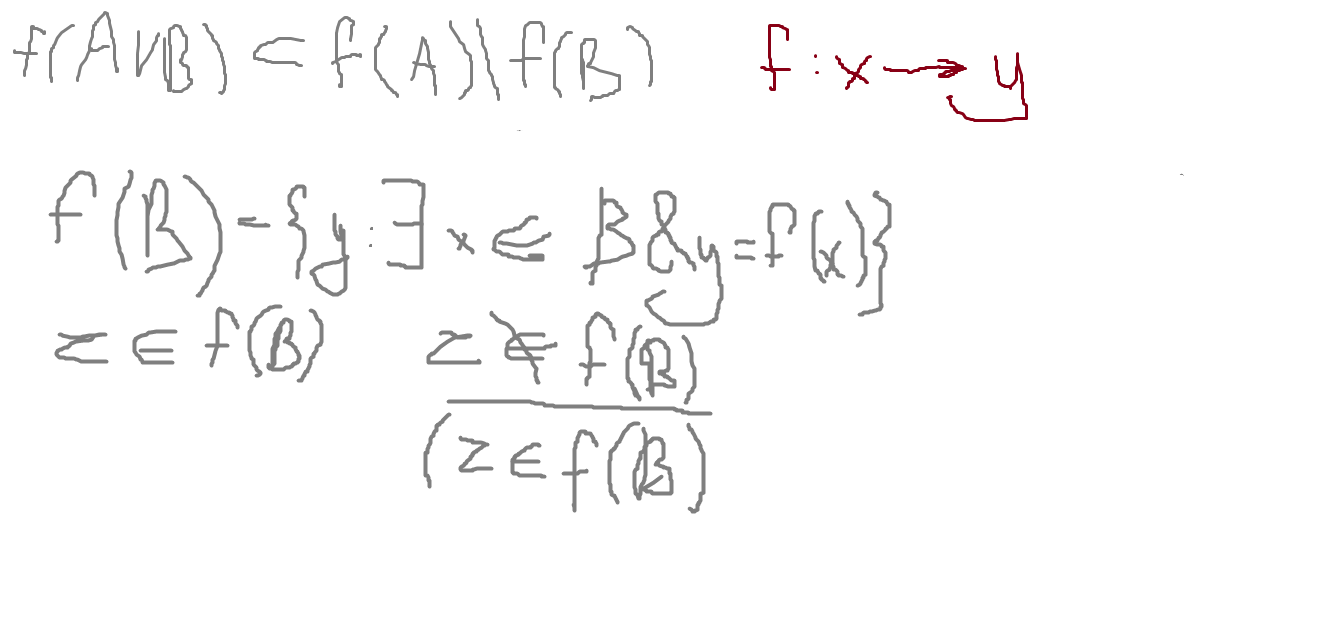 f(A\B) ⊂ f(A)\f(B) f : x → y
f(B) = {y : ∃ x ∈ B & y = f(x)}
z ∈ f(B) z ∉ f(B)
(z ∈ f(B)